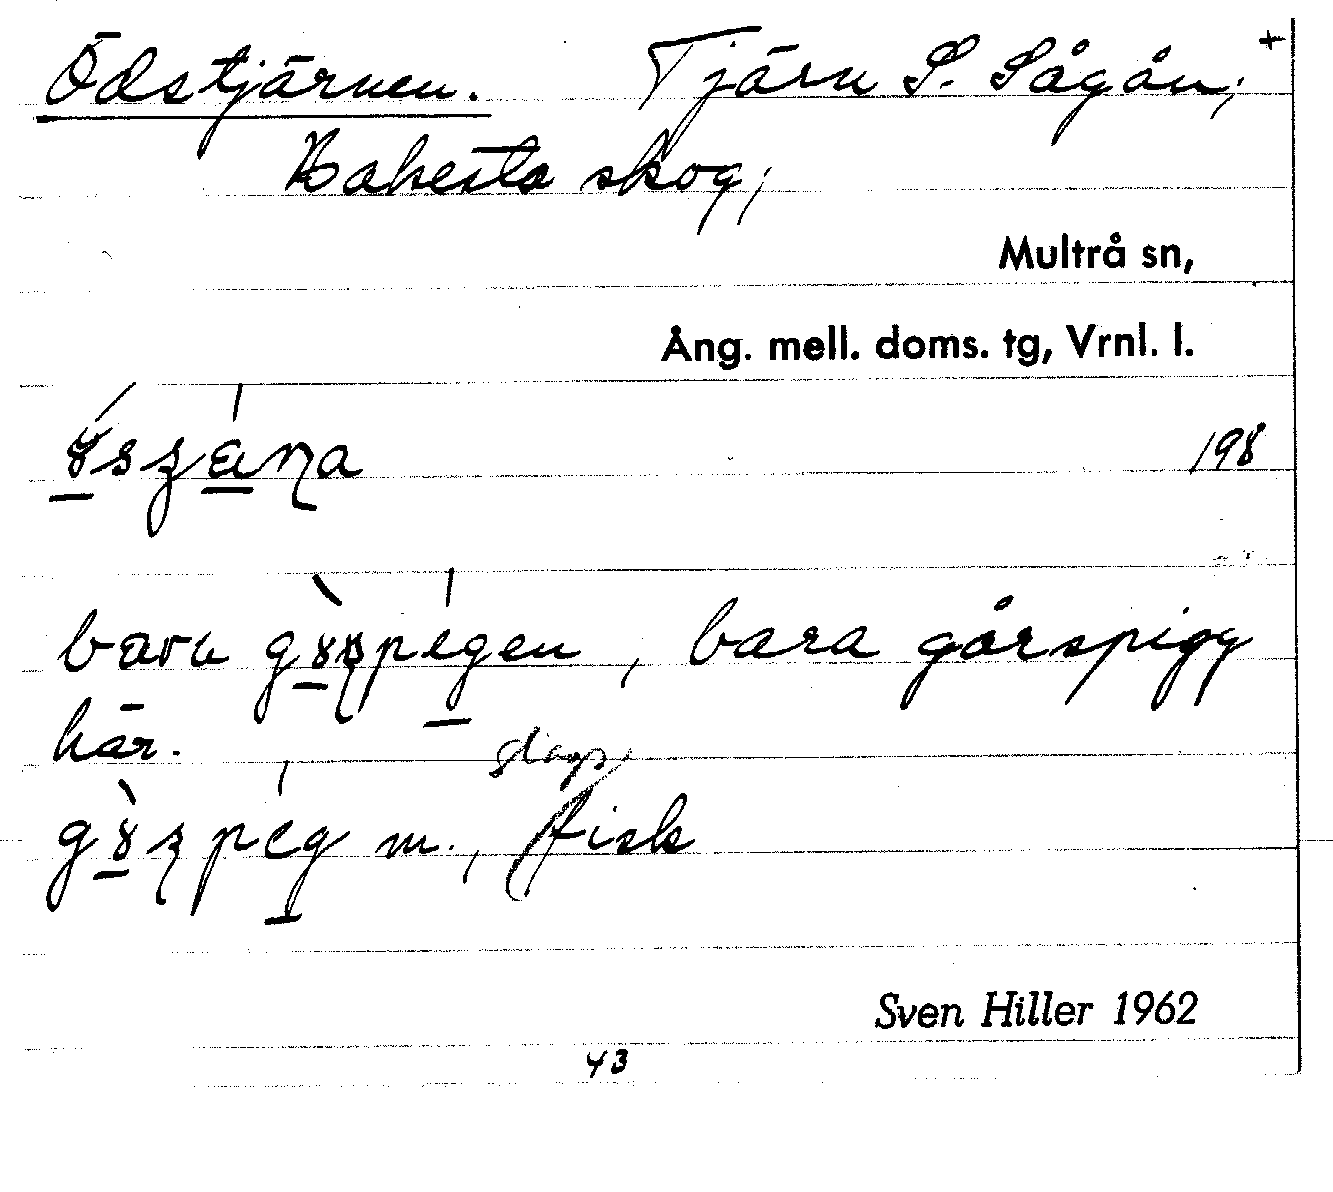 Ödstjärnen. Tjärn S. Sågån; +
skog;
Multrå sn,
Ång. mell. doms. tg, Vrnl. l.
198
bara, bara gårspigg
här.
slags
m., fisk
Sven Hiller 1962
43